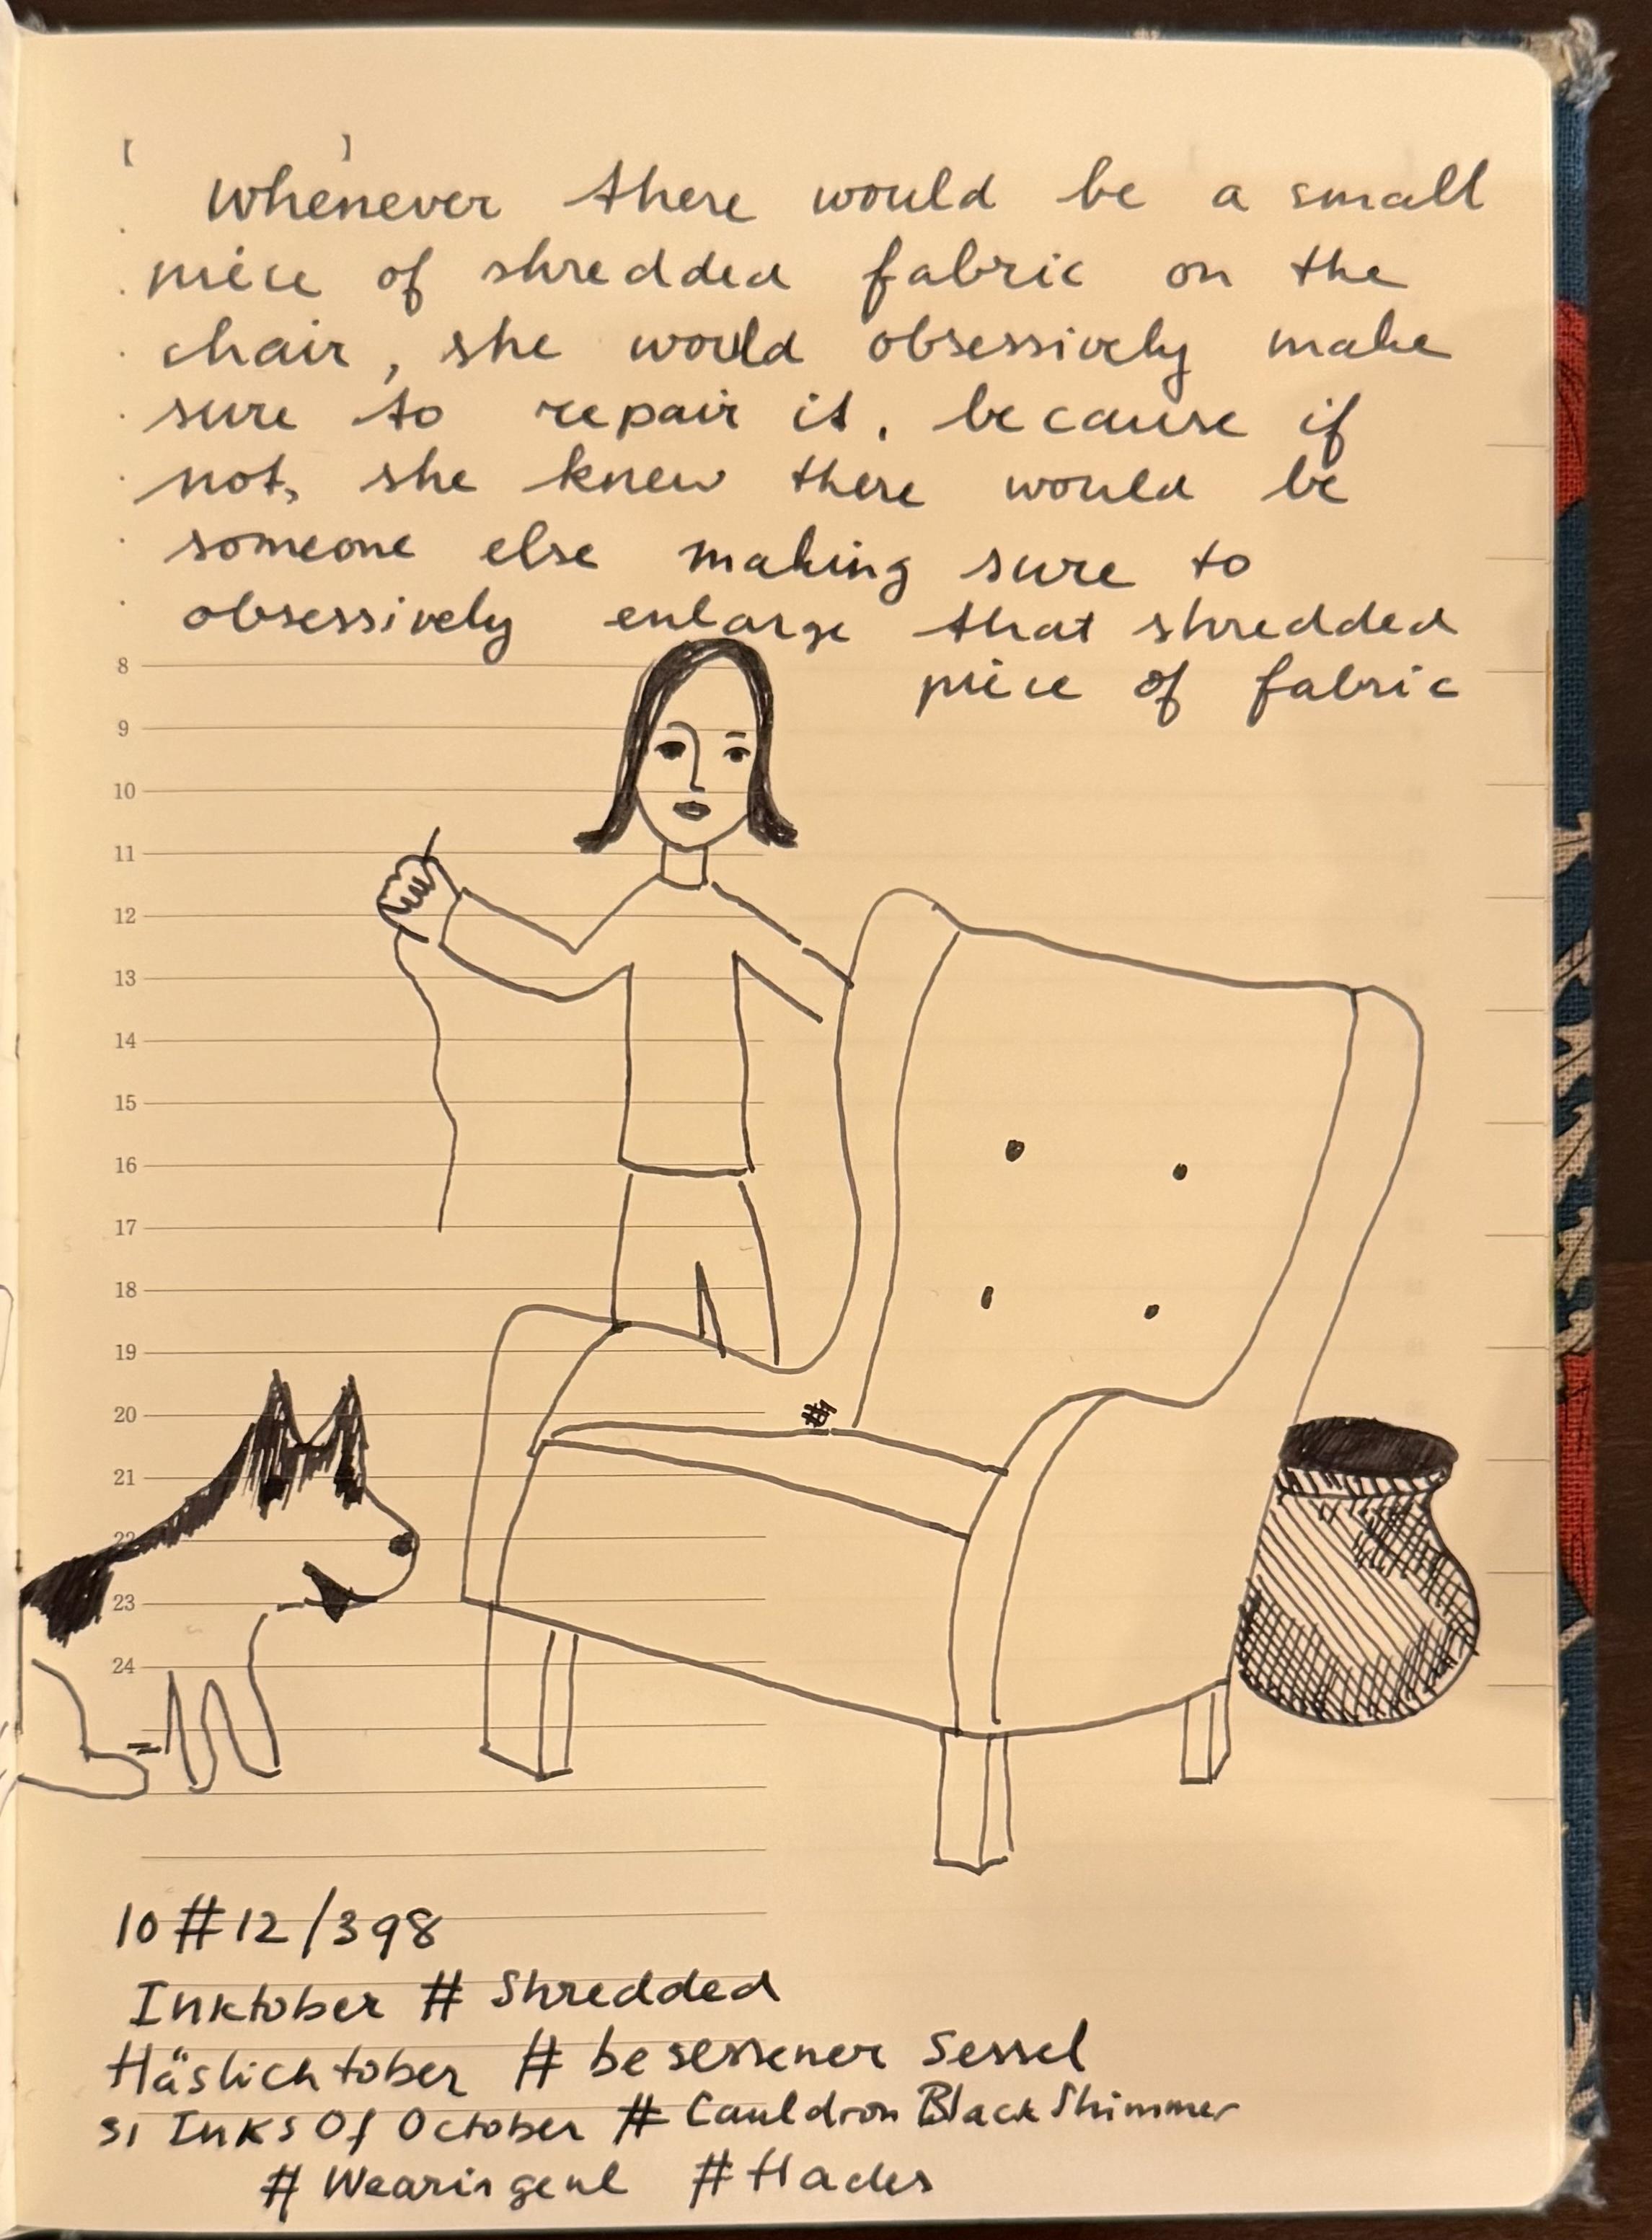 [ ]
Whenever there would be a small
piece of shredded fabric on the
chair, she would obsessively make
sure to repair it, because if
not, she knew there would be
someone else making sure to
obsessively enlarge that shredded
piece of fabric
8
9
10
11
12
13
14
15
16
17
18
19
20
21
22
23
24
10#12/398
Inktober # Shredded
Häslichtober # besessener Sessel
31 Inks Of October # Cauldron Black Shimmer
# Wearingeul # Hades